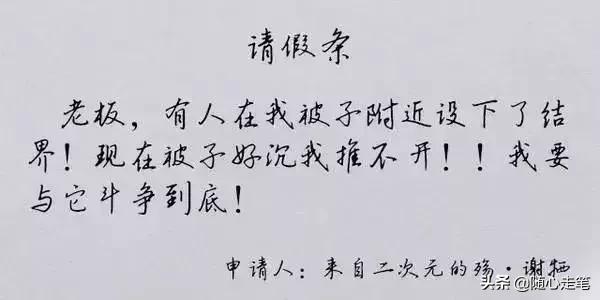 请假条
老板，有人在我被子附近设下了结
界！现在被子好沉我推不开！！我要
与它斗争到底！
申请人：来自二次元的殇·谢牺
头条@随心走笔